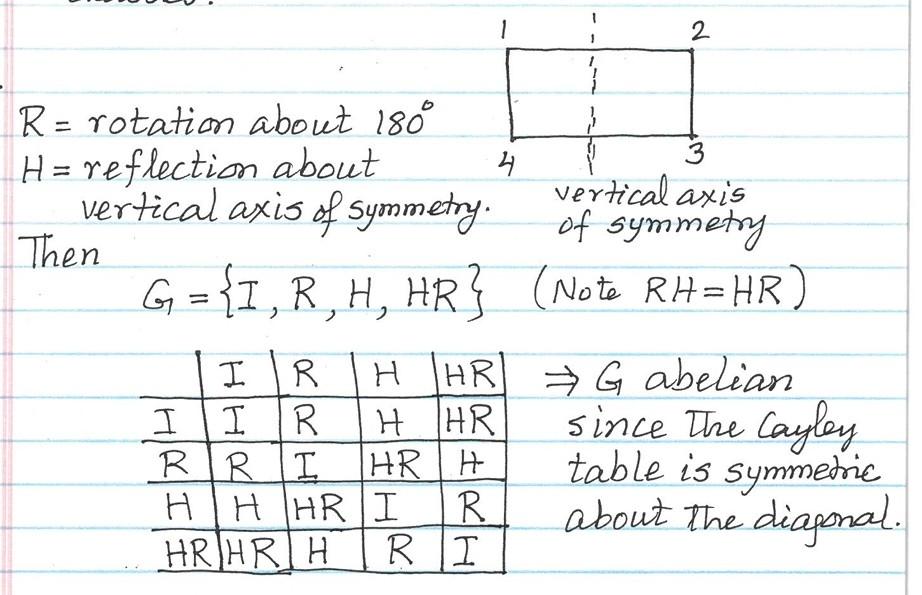 1 2
R = rotation about 180°
H = reflection about
4 3
vertical axis of symmetry.
vertical axis
of symmetry
Then
G = {I, R, H, HR} (Note RH = HR)
I R H HR
I I R H HR
R R I HR H
H H HR I R
HR HR H R I
⇒ G abelian
since the Cayley
table is symmetric
about the diagonal.